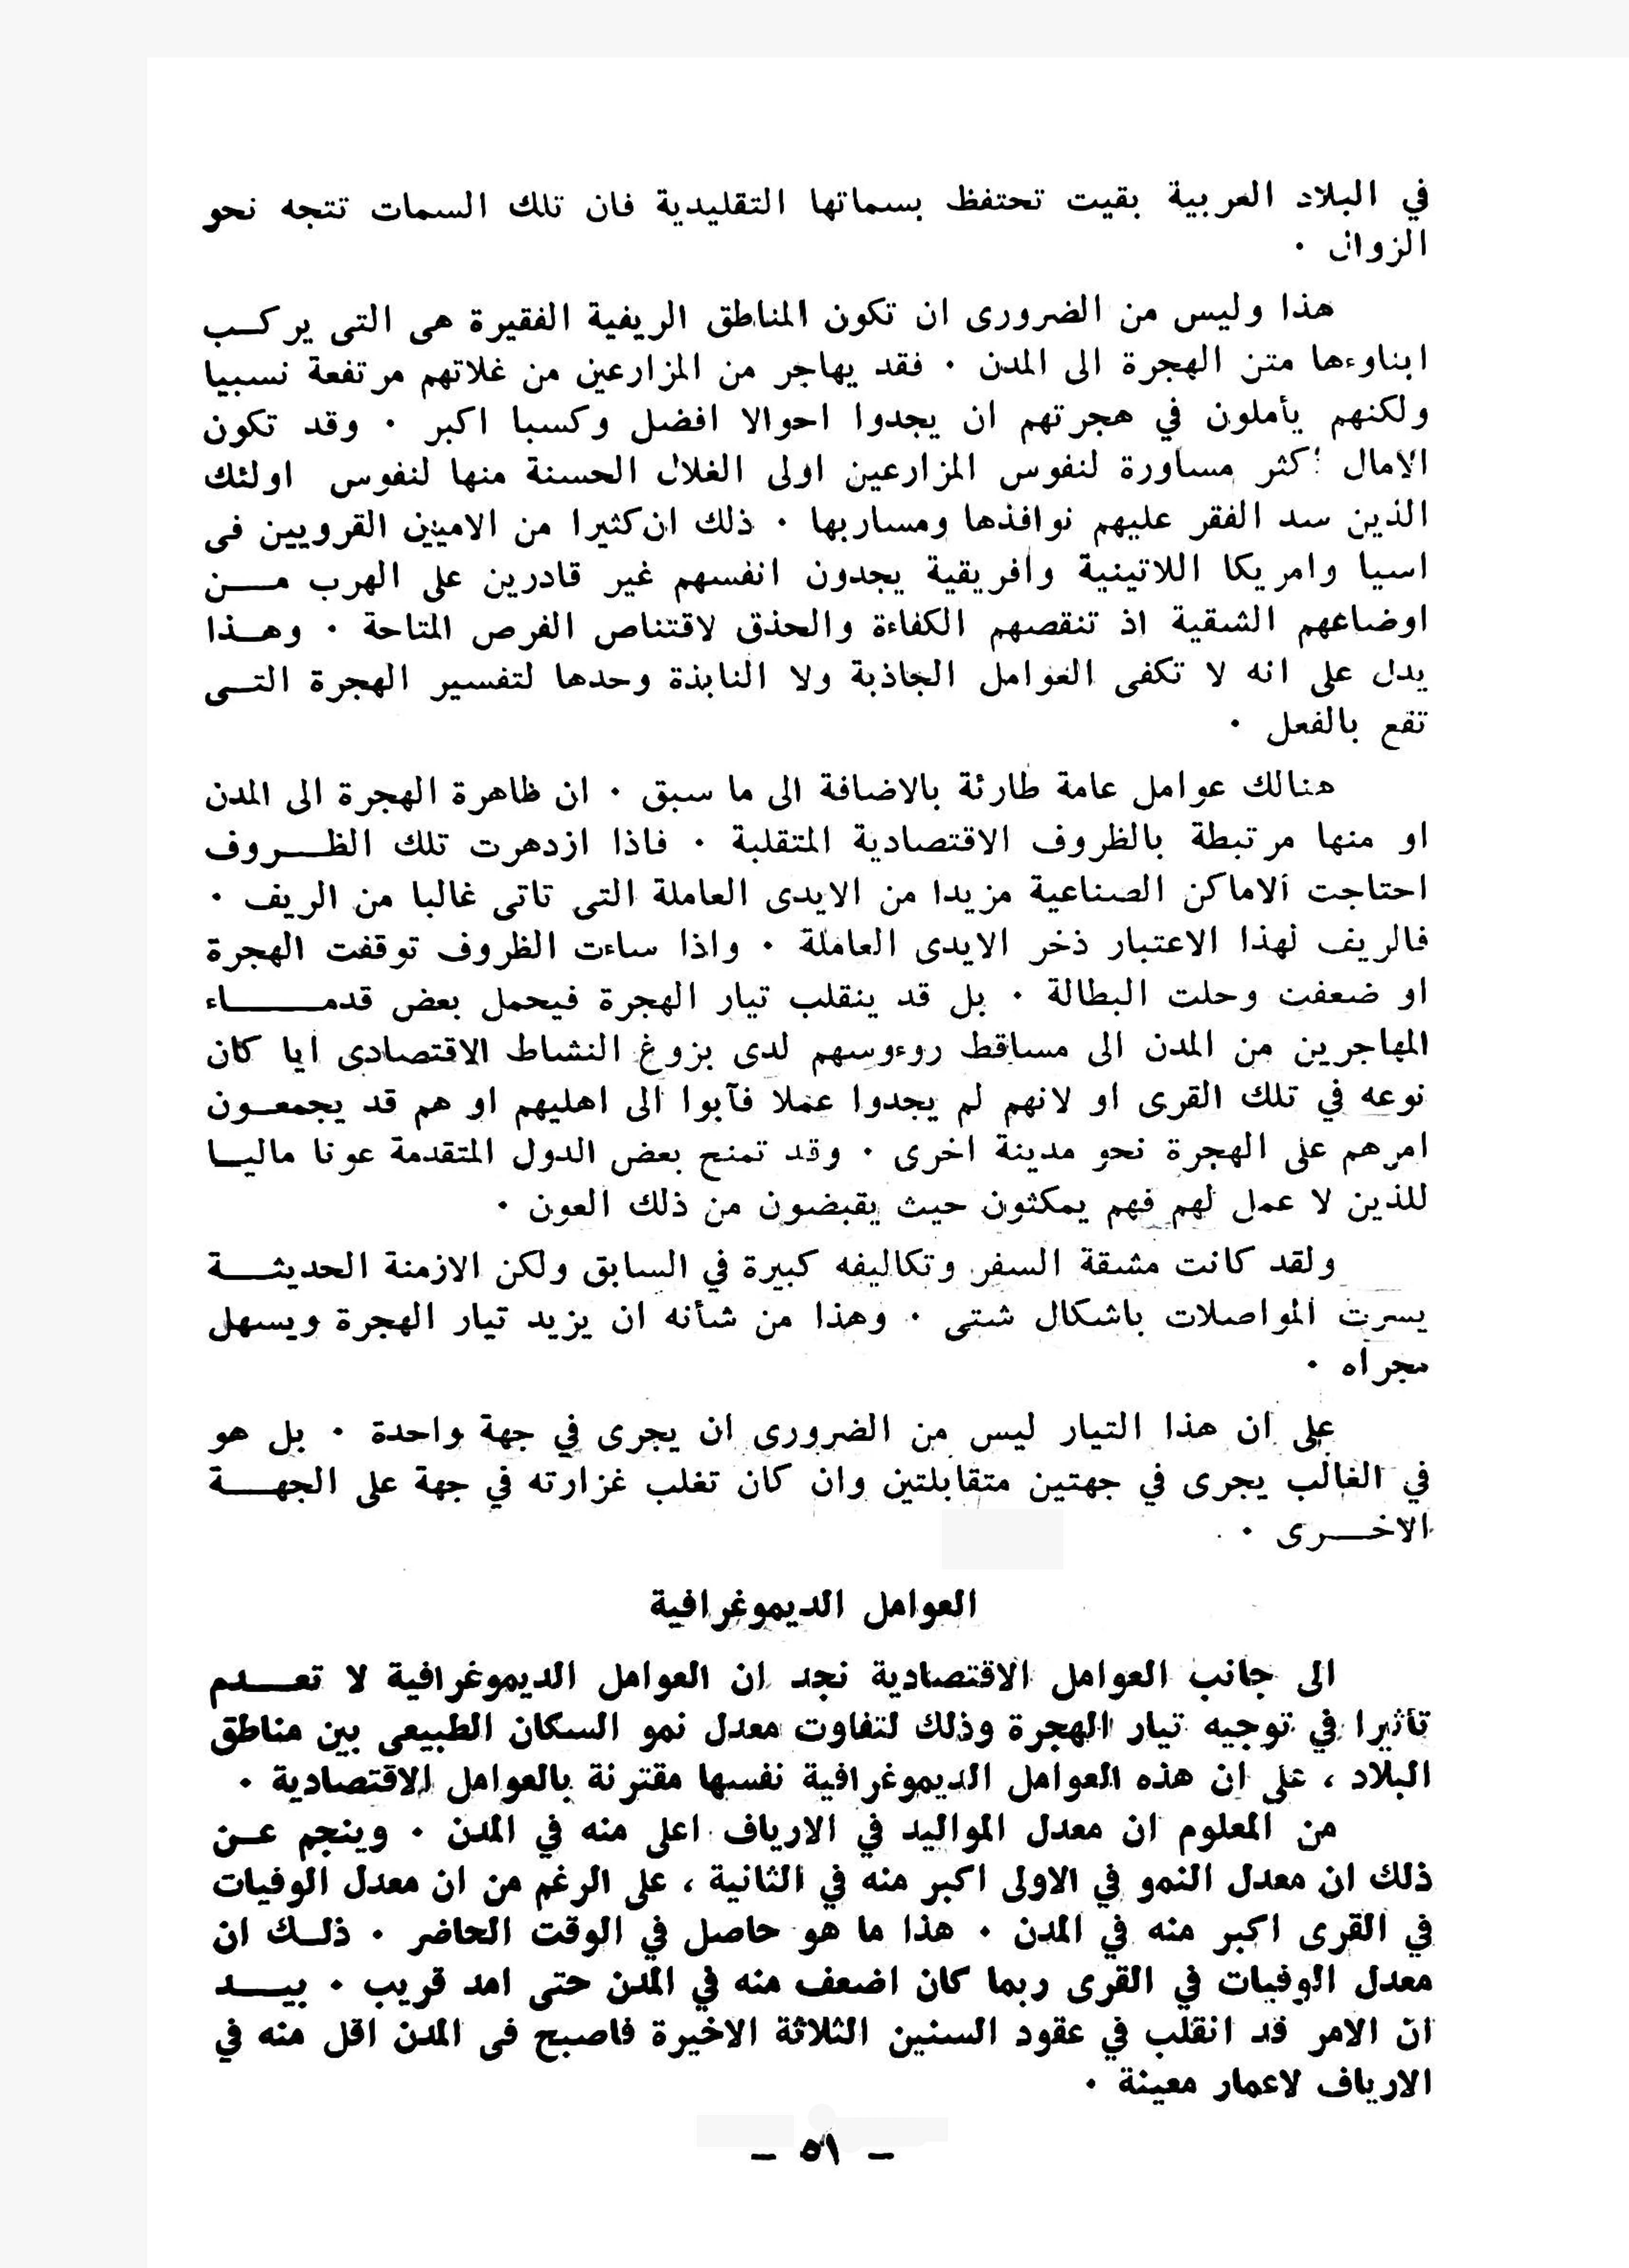 في البلاد العربية بقيت تحتفظ بسماتها التقليدية فان تلك السمات تتجه نحو
الزوال ٠
هذا وليس من الضرورى ان تكون المناطق الريفية الفقيرة هى التى يركـب
ابناوءها متن الهجرة الى المدن ٠ فقد يهاجر من المزارعين من غلاتهم مرتفعة نسبيا
ولكنهم يأملون في هجرتهم ان يجدوا احوالا افضل وكسبا اكبر ٠ وقد تكون
الامال اكثر مساورة لنفوس المزارعين اولى الغلال الحسنة منها لنفوس اولئك
الذين سد الفقر عليهم نوافذها ومساربها ٠ ذلك ان كثيرا من الاميين القرويين فى
اسيا وامريكا اللاتينية وافريقية يجدون انفسهم غير قادرين على الهرب مـــن
اوضاعهم الشقية اذ تنقصهم الكفاءة والحذق لاقتناص الفرص المتاحة ٠ وهـذا
يدل على انه لا تكفى العوامل الجاذبة ولا النابذة وحدها لتفسير الهجرة التـى
تقع بالفعل ٠
هنالك عوامل عامة طارئة بالاضافة الى ما سبق ٠ ان ظاهرة الهجرة الى المدن
او منها مرتبطة بالظروف الاقتصادية المتقلبة ٠ فاذا ازدهرت تلك الظـــروف
احتاجت الاماكن الصناعية مزيدا من الايدى العاملة التى تاتى غالبا من الريف ٠
فالريف لهذا الاعتبار ذخر الايدى العاملة ٠ واذا ساءت الظروف توقفت الهجرة
او ضعفت وحلت البطالة ٠ بل قد ينقلب تيار الهجرة فيحمل بعض قدمـــــاء
المهاجرين من المدن الى مساقط روءوسهم لدى بزوغ النشاط الاقتصادى ايا كان
نوعه في تلك القرى او لانهم لم يجدوا عملا فآبوا الى اهليهم او هم قد يجمعـون
امرهم على الهجرة نحو مدينة اخرى ٠ وقد تمنح بعض الدول المتقدمة عونا ماليـا
للذين لا عمل لهم فهم يمكثون حيث يقبضون من ذلك العون ٠
ولقد كانت مشقة السفر وتكاليفه كبيرة في السابق ولكن الازمنة الحديثـــة
يسرت المواصلات باشكال شتى ٠ وهذا من شأنه ان يزيد تيار الهجرة ويسهل
مجراه ٠
على ان هذا التيار ليس من الضرورى ان يجرى في جهة واحدة ٠ بل هو
في الغالب يجرى في جهتين متقابلتين وان كان تغلب غزارته في جهة على الجهـــة
الاخـــرى ٠
العوامل الديموغرافية
الى جانب العوامل الاقتصادية نجد ان العوامل الديموغرافية لا تعـــدم
تأثيرا في توجيه تيار الهجرة وذلك لتفاوت معدل نمو السكان الطبيعى بين مناطق
البلاد ، على ان هذه العوامل الديموغرافية نفسها مقترنة بالعوامل الاقتصادية ٠
من المعلوم ان معدل المواليد في الارياف اعلى منه في المدن ٠ وينجم عـن
ذلك ان معدل النمو في الاولى اكبر منه في الثانية ، على الرغم من ان معدل الوفيات
في القرى اكبر منه في المدن ٠ هذا ما هو حاصل في الوقت الحاضر ٠ ذلـك ان
معدل الوفيات في القرى ربما كان اضعف منه في المدن حتى امد قريب ٠ بيـــد
ان الامر قد انقلب في عقود السنين الثلاثة الاخيرة فاصبح فى المدن اقل منه في
الارياف لاعمار معينة ٠
– ٥١ –